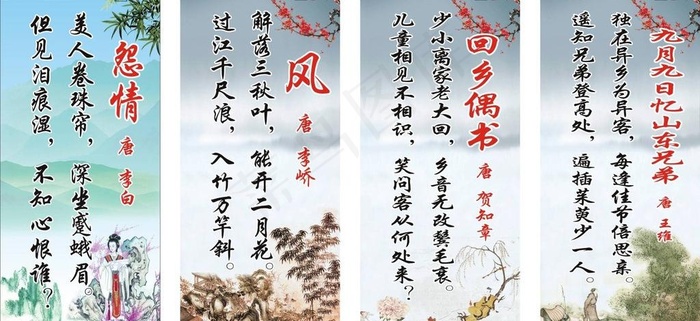 怨情
唐 李白
美人卷珠帘，深坐蹙蛾眉。
但见泪痕湿，不知心恨谁？
风
唐 李峤
解落三秋叶，能开二月花。
过江千尺浪，入竹万竿斜。
回乡偶书
唐 贺知章
少小离家老大回，乡音无改鬓毛衰。
儿童相见不相识，笑问客从何处来？
九月九日忆山东兄弟
唐 王维
独在异乡为异客，每逢佳节倍思亲。
遥知兄弟登高处，遍插茱萸少一人。